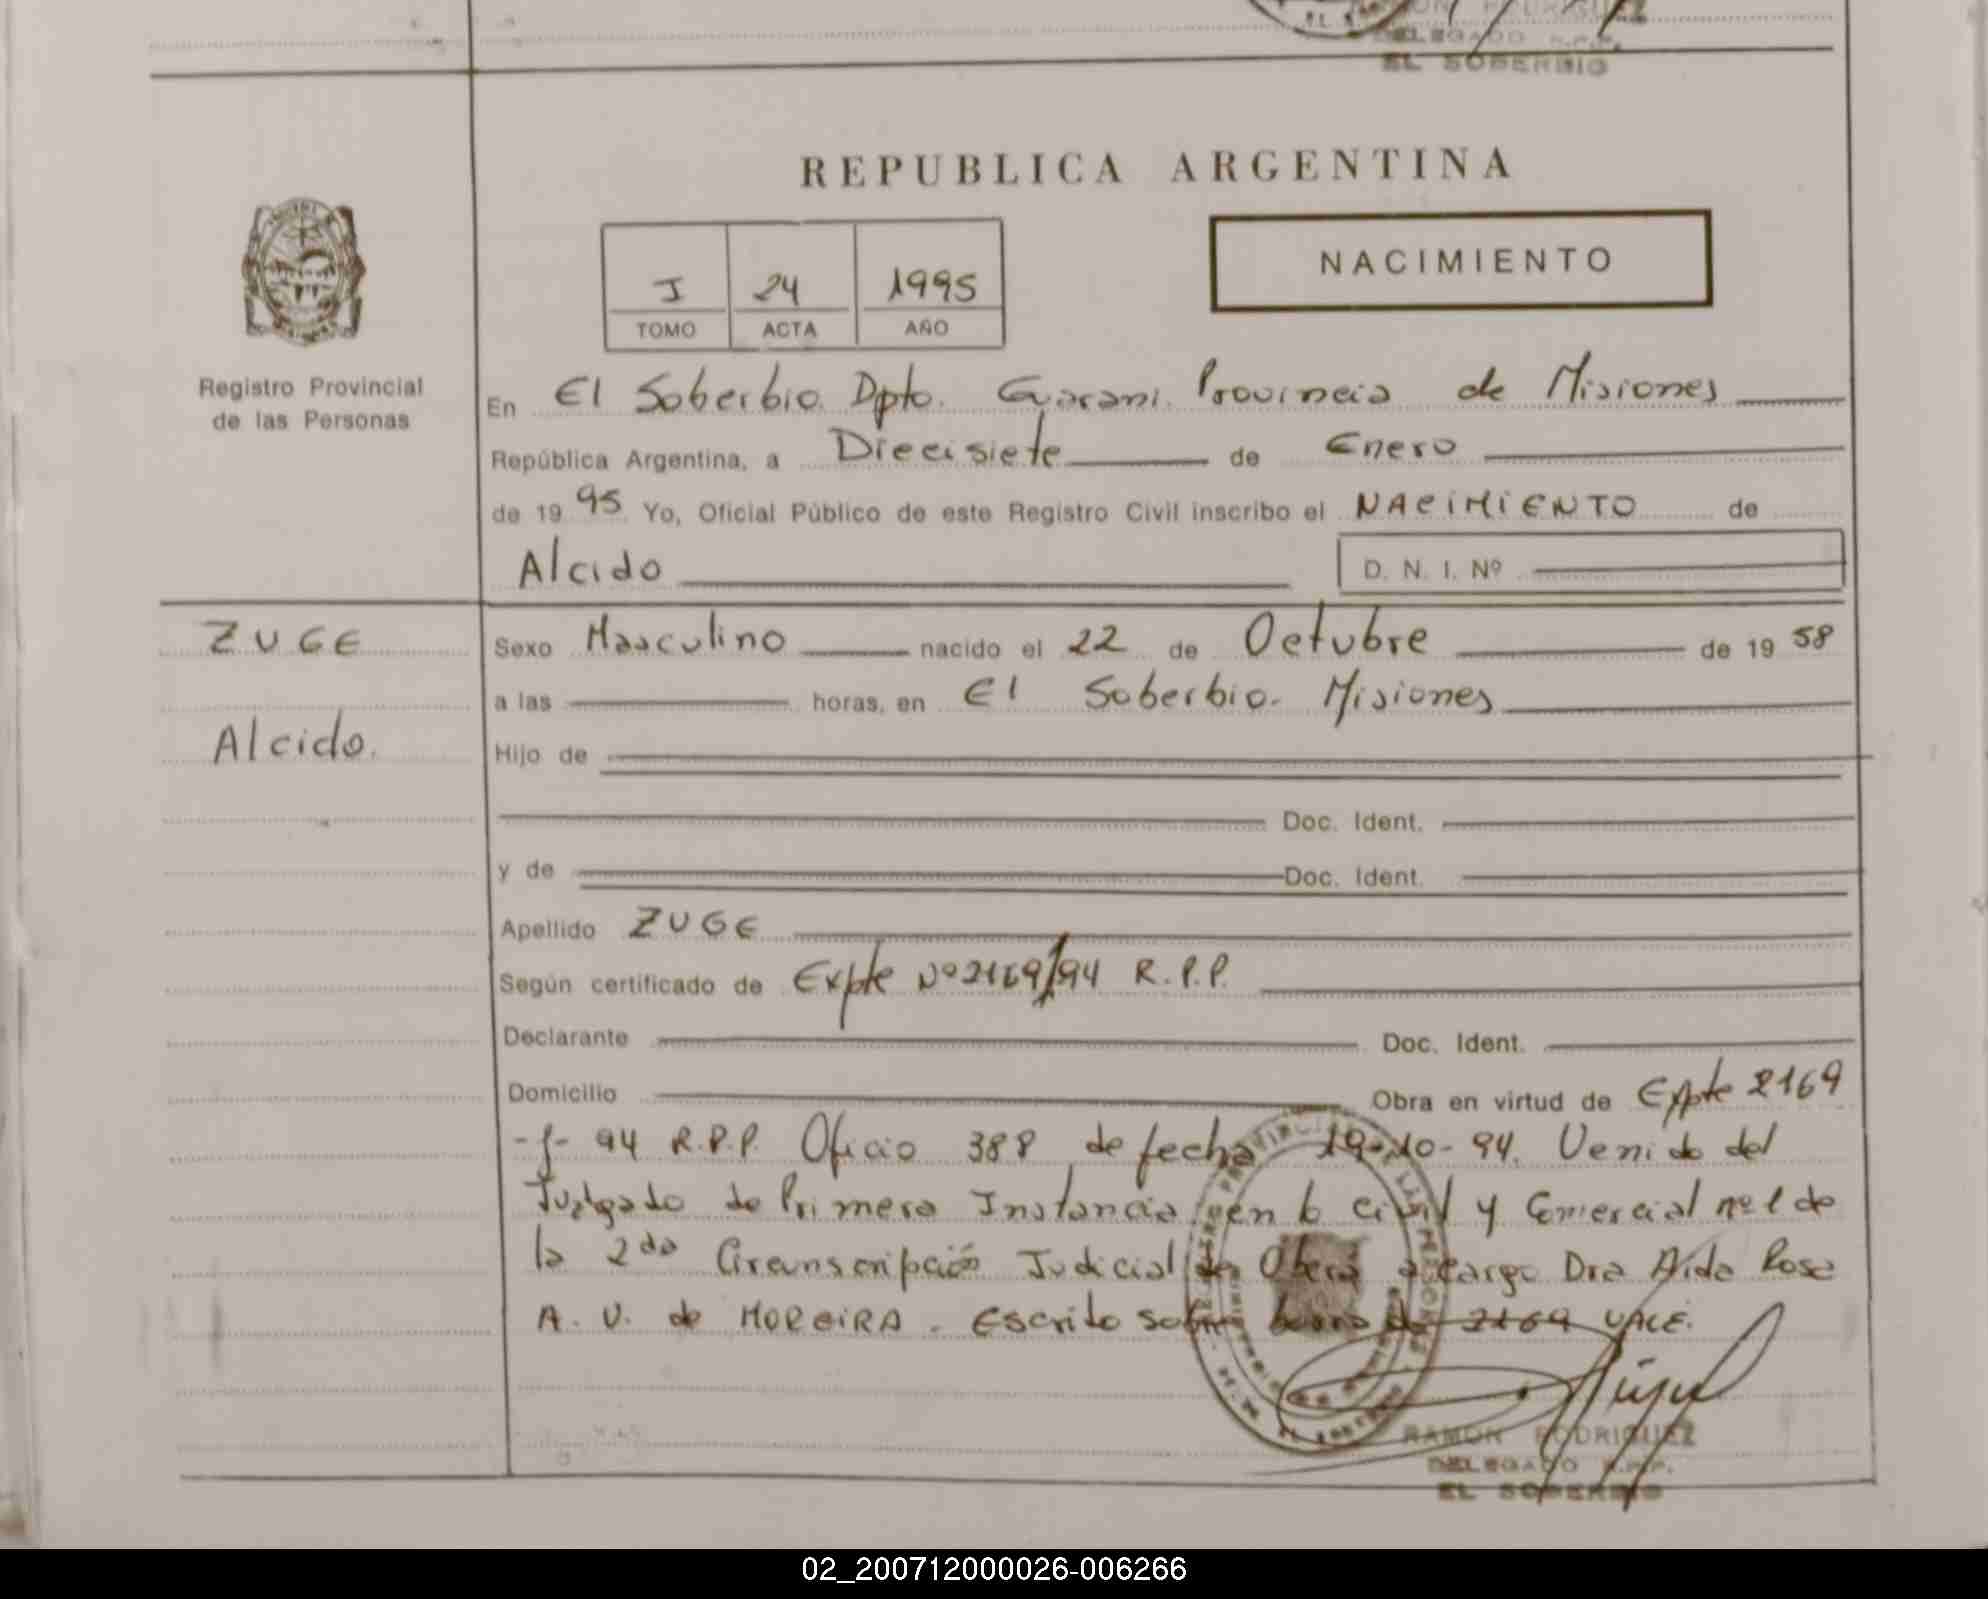 DELEGADO R.P.P.
EL SOBERBIO
REPUBLICA ARGENTINA
NACIMIENTO
I 24 1995
TOMO ACTA AÑO
Registro Provincial
de las Personas
En El Soberbio. Dpto. Guarani. Provincia de Misiones
República Argentina, a Diecisiete de Enero
de 1995 Yo, Oficial Público de este Registro Civil inscribo el NACIMIENTO de
Alcido D. N. I. Nº
ZUGE
Alcido.
Sexo Masculino nacido el 22 de Octubre de 1958
a las horas, en El Soberbio. Misiones
Hijo de
Doc. Ident.
y de Doc. Ident.
Apellido ZUGE
Según certificado de Expte Nº 2169/94 R.P.P.
Declarante Doc. Ident.
Domicilio Obra en virtud de Expte 2169
-/- 94 R.P.P. Oficio 388 de fecha 19-10-94. Venido del
Juzgado de Primera Instancia en lo civil y Comercial nº 1 de
la 2da Circunscripción Judicial de Obera a cargo Dra Aida Rosa
A. V. de MOREIRA. Escrito sobre borrado 2169 VALE.
RAMON RODRIGUEZ
DELEGADO R.P.P.
EL SOBERBIO
02_200712000026-006266